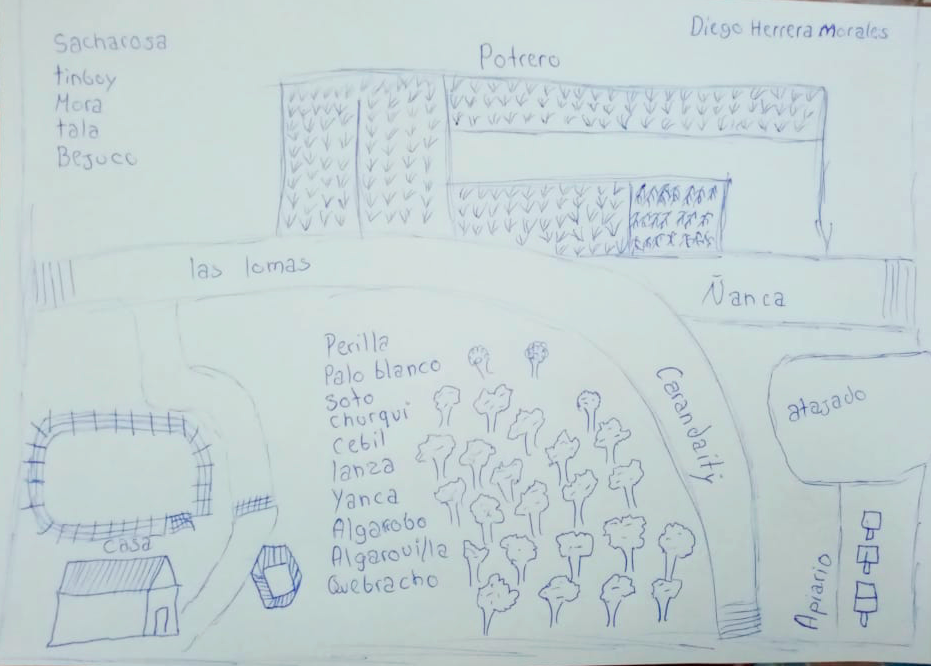 Diego Herrera Morales
Sacharosa
tinboy
Mora
tala
Bejuco
Potrero
las lomas
Ñanca
Perilla
Palo blanco
Soto
churqui
cebil
lanza
Yanca
Algarobo
Algarovilla
Quebracho
Carandaity
atajado
casa
Apiario